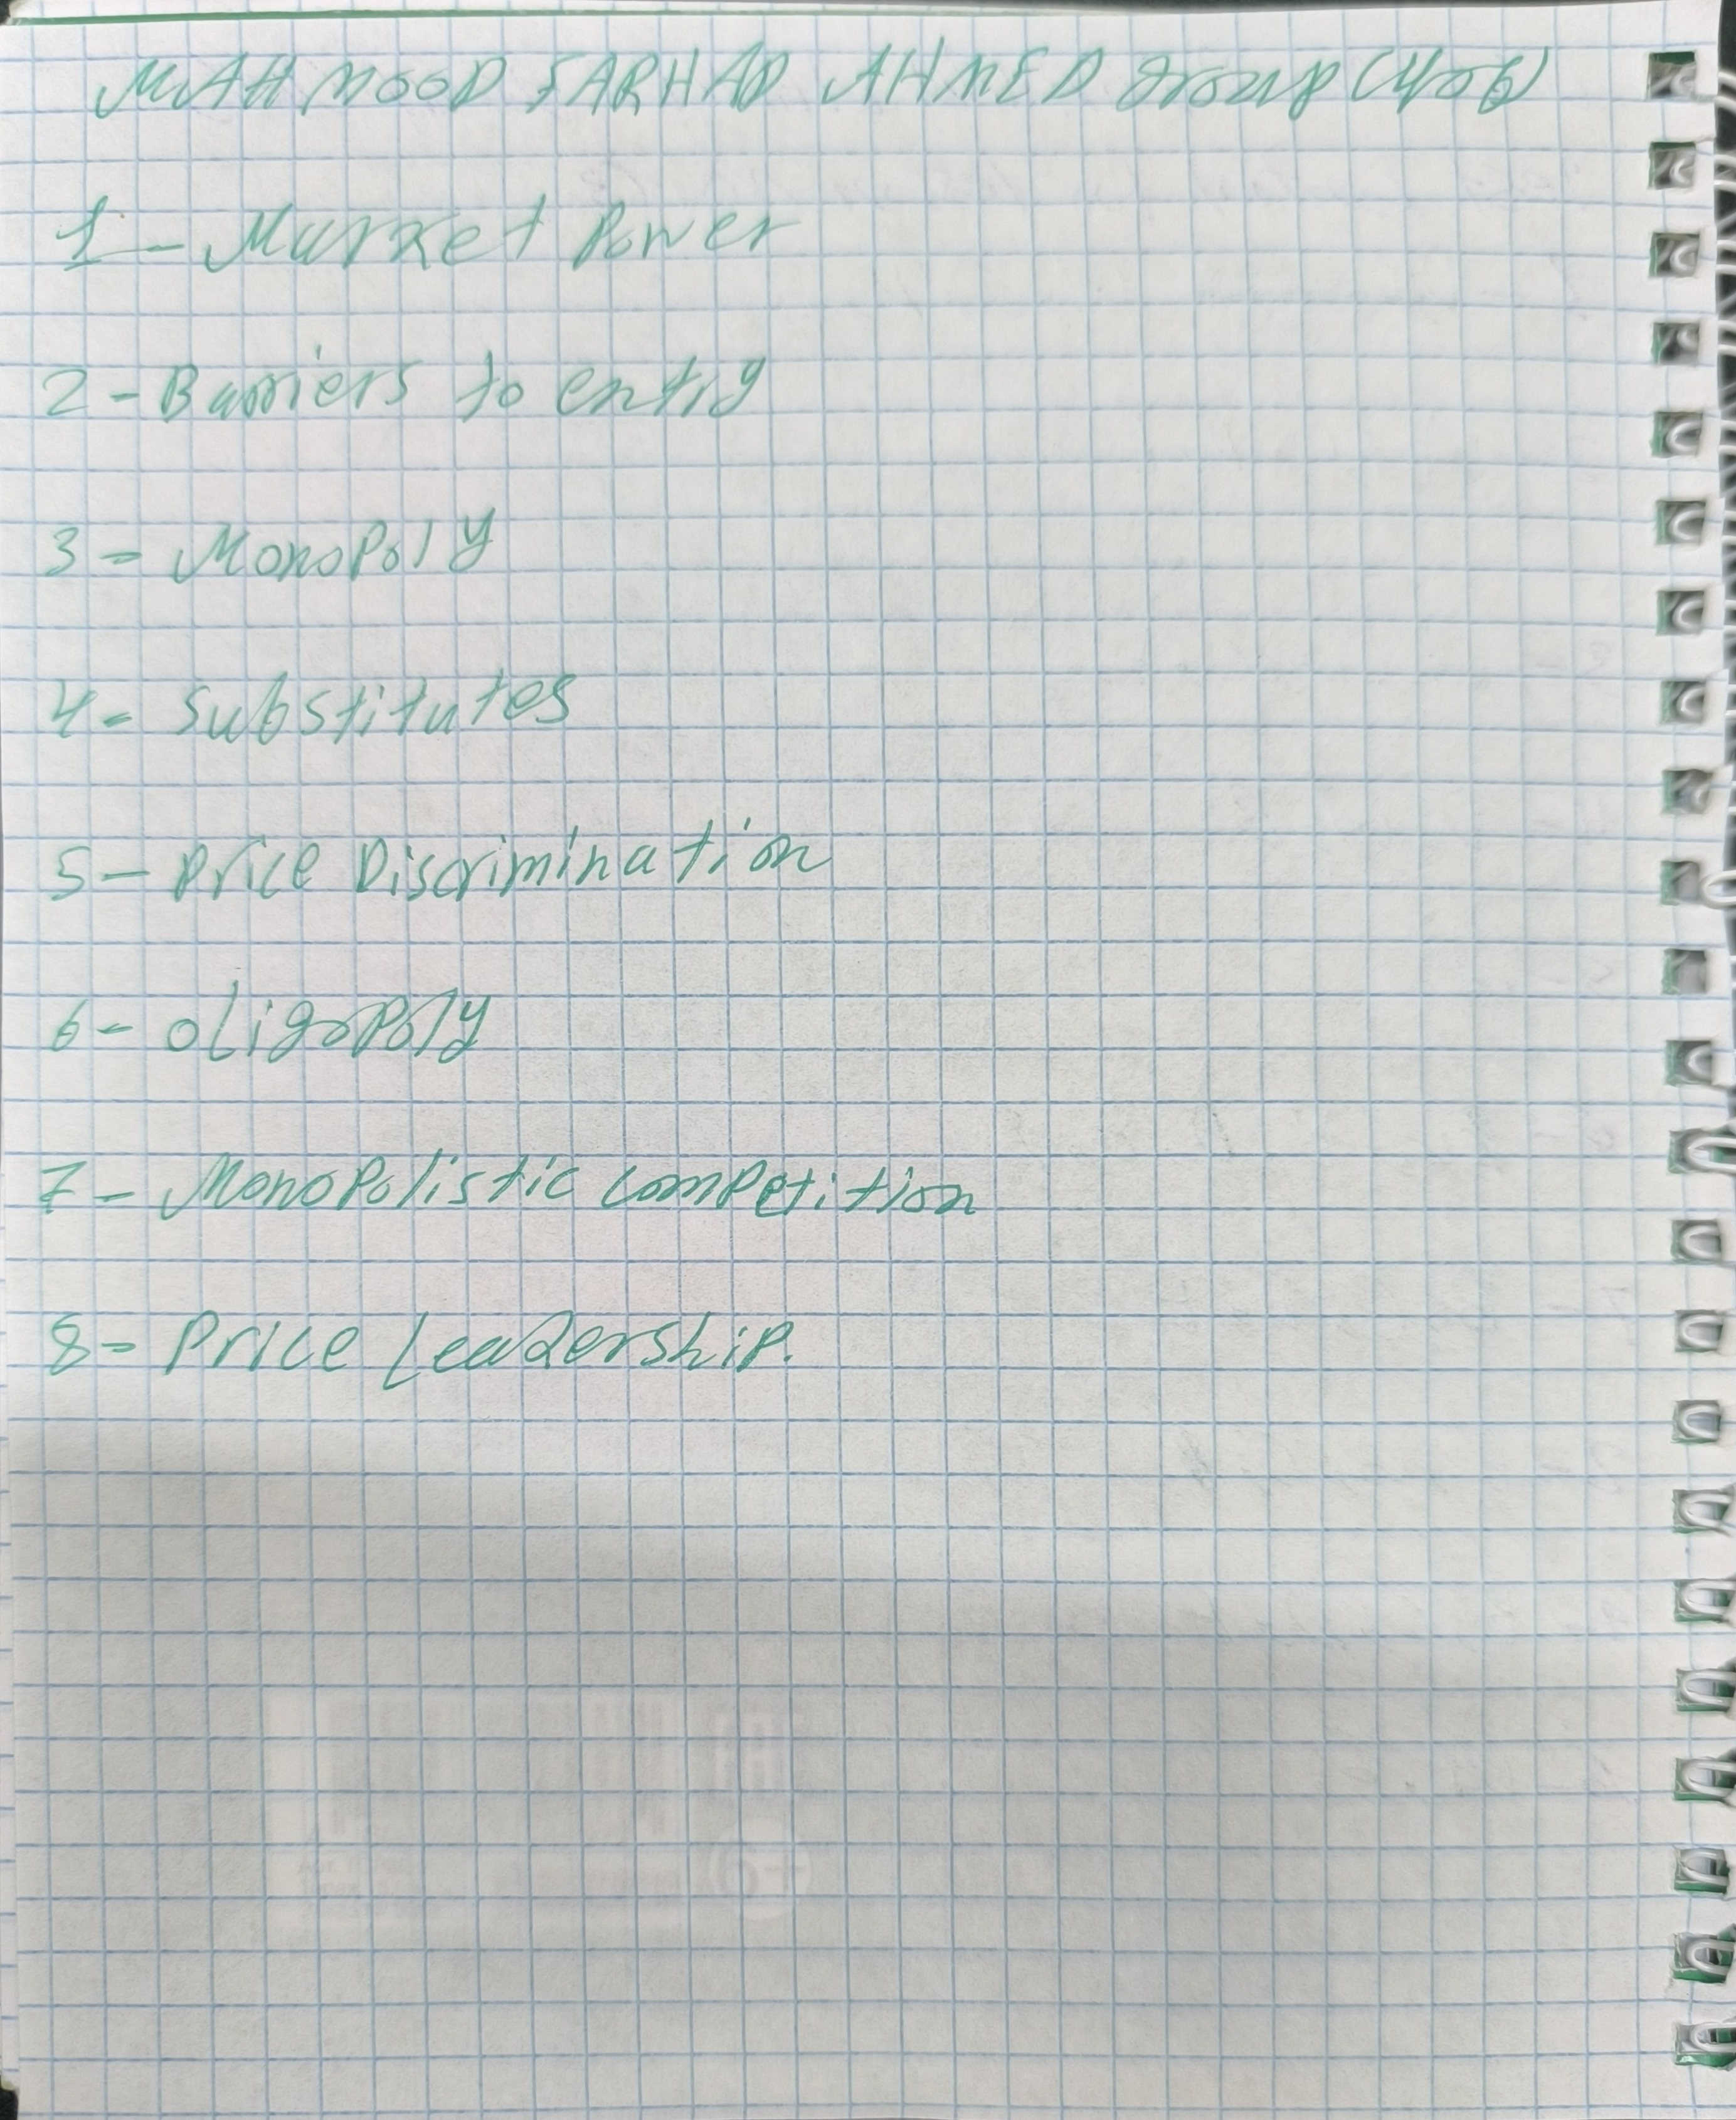 MAHMOOD FARHAD AHMED group (406)
1 - Market Power
2 - Barriers to entry
3 - Monopoly
4 - Substitutes
5 - Price Discrimination
6 - oligopoly
7 - Monopolistic competition
8 - Price Leadership.